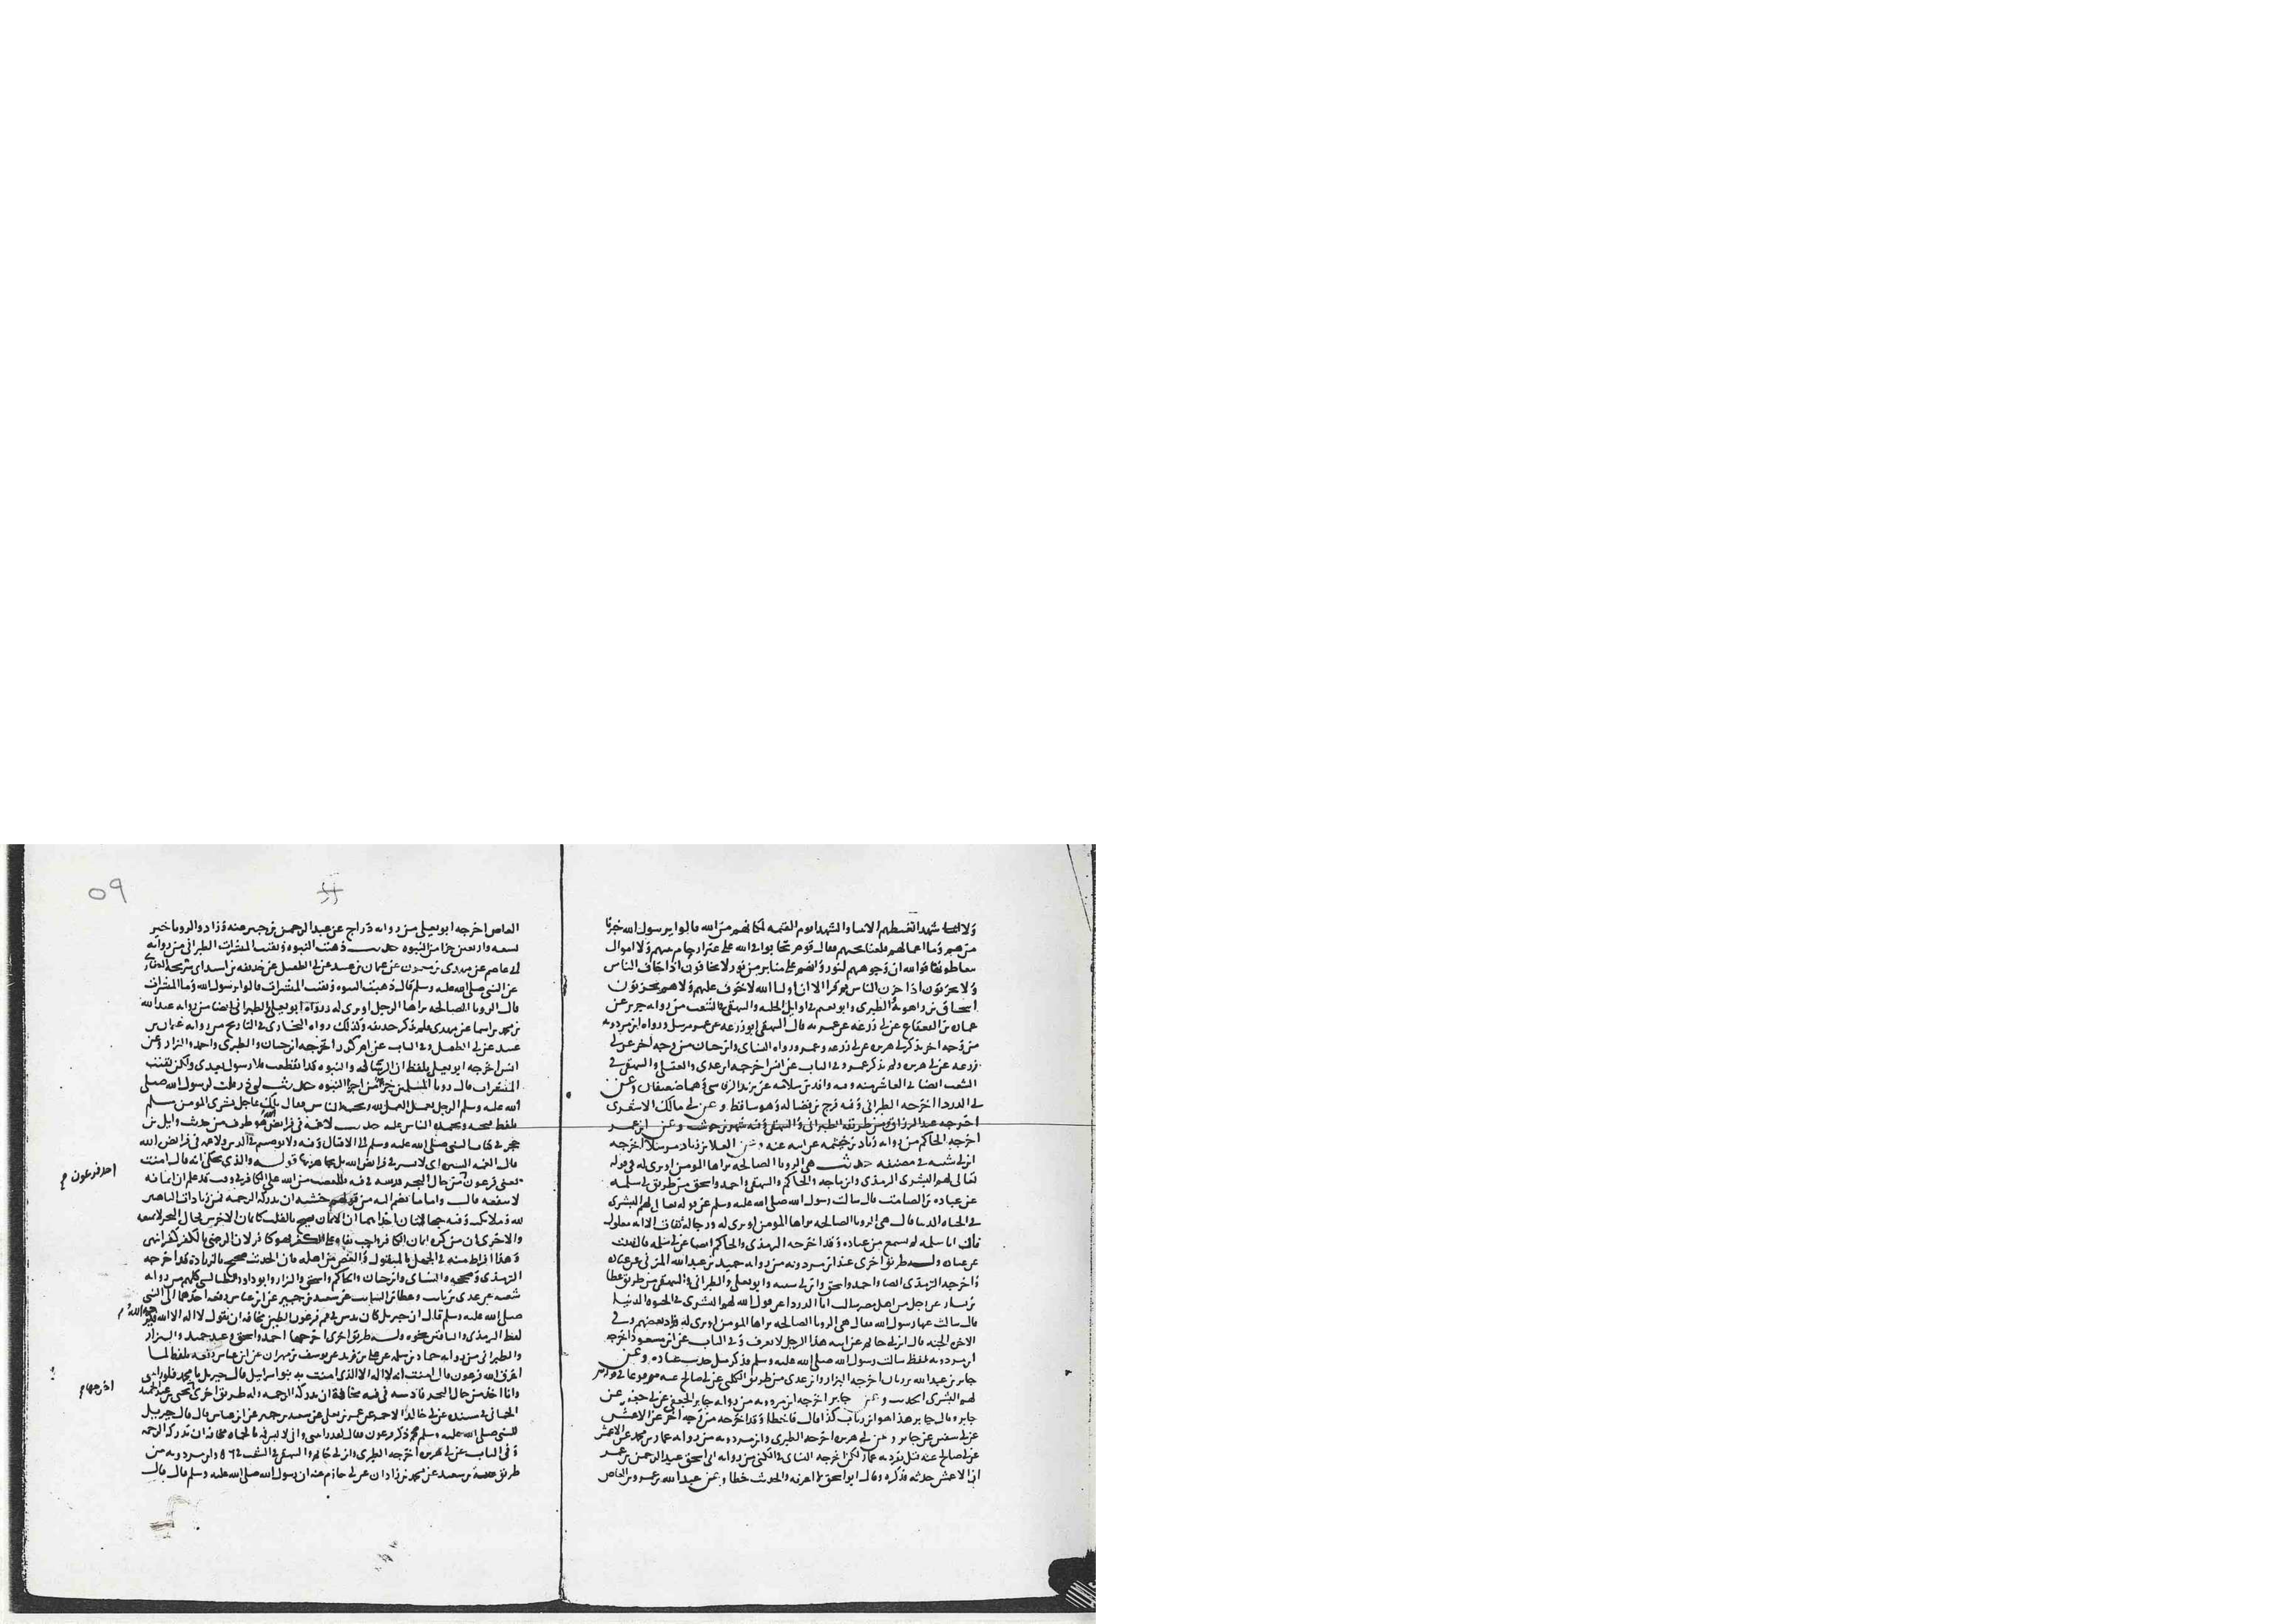 ولا شهدا تغبطهم الانبيا والشهدا يوم القيمه لمكانهم من الله قالوا يرسول الله خبرنا
من هم وما اعمالهم فلعلنا نحبهم فقال قوم تحابوا في الله على غير ارحام بينهم ولا اموال
يتعاطونها فوالله ان وجوههم لنور وانهم على منابر من نور لا يخافون اذا خاف الناس
ولا يحزنون اذا حزن الناس ثم قرا الا ان اوليا الله لا خوف عليهم ولا هم يحزنون
اسحاق بن راهويه والطبري وابو نعيم في اوايل الحليه والبيهقي في الشعب من روايه جرير عن
عماره بن القعقاع عن ابي زرعه عن عمر به قال البيهقي ابو زرعه عن عمر مرسل ورواه ابن مردويه
من وجه اخر بذكر ابي هريره عن ابي زرعه وعمر ورواه النساي وابن حبان من وجه اخر عن ابي
زرعه عن ابي هريره ولم يذكر عمر وفي الباب عن انس اخرجه ابن عدي والعقيلي والبيهقي في
الشعب ايضا في العاشر منه وفيه واقد بن سلامه عن يزيد الرقاشي وهما ضعيفان وعن
ابي الدردا اخرجه الطبراني وفيه فرج بن فضاله وهو ساقط وعن ابي مالك الاشعري
اخرجه عبد الرزاق ومن طريقه الطبراني والبيهقي وفيه شهر بن حوشب وعن ابن عمر
اخرجه الحاكم من روايه زياد بن خيثمه عن ابيه عنه وعن العلا بن زياد مرسلا اخرجه
ابن ابي شيبه في مصنفه حديث هي الرويا الصالحه يراها المومن او ترى له في قوله
تعالى لهم البشرى الترمذي وابن ماجه والحاكم والبيهقي واحمد واسحق من طريق ابي سلمه
عن عباده بن الصامت قال سالت رسول الله صلى الله عليه وسلم عن قوله تعالى لهم البشرى
في الحياه الدنيا قال هي الرويا الصالحه يراها المومن او ترى له ورجاله ثقات الا انه معلول
فان ابا سلمه لم يسمع من عباده وقد اخرجه الترمذي والحاكم ايضا عن ابي سلمه قال نبئت
عن عباده وله طريق اخرى عند ابن مردويه من روايه حميد بن عبد الله المزني عن عباده
واخرجه الترمذي ايضا واحمد واسحق وابن ابي شيبه وابو يعلى والطبراني والبيهقي من طريق عطا
بن يسار عن رجل من اهل مصر سالت ابا الدردا عن قول الله لهم البشرى في الحيوه الدنيا
قال سالت عنها رسول الله فقال هي الرويا الصالحه يراها المومن او ترى له وزاد بعضهم وفي
الاخره الجنه قال ابن ابي حاتم عن ابيه هذا الرجل لا يعرف وفي الباب عن ابن مسعود اخرجه
ابن مردويه بلفظ سالت رسول الله صلى الله عليه وسلم فذكر مثل حديث عباده وعن
جابر بن عبد الله بن رباب اخرجه البزار وابن عدي من طريق الكلبي عن ابي صالح عنه مرفوعا في قوله
لهم البشرى الحديث وعن جابر اخرجه ابن مردويه من روايه جابر الجعفي عن ابي جعفر عن
جابر وقال جابر هذا هو ابن رباب كذا قال فاخطا وقد اخرجه من وجه اخر عن الاعمش
عن ابي سفين عن جابر وعن ابي هريره اخرجه الطبري وابن مردويه من روايه عمار بن محمد عن الاعمش
عن ابي صالح عنه قيل تفرد به عمار لكن اخرجه النساي في الكنى من روايه ابي اسحق عبد الرحمن بن عمر
ان الاعمش حدثه فذكره وقال ابو اسحق لا اعرفه والحديث خطا وعن عبد الله بن عمرو بن العاص
٥٩
العاص اخرجه ابو يعلى من روايه دراج عن عبد الرحمن بن جبير عنه وزاد والرويا خير
تسعه واربعين جزا من النبوه حديث ذهبت النبوه وبقيت المبشرات الطبراني من روايه
ابي عاصم عن مهدي بن ميمون عن عثمان بن عبيد عن ابي الطفيل عن حذيفه بن اسيد ابي سريحه الغفاري
عن النبي صلى الله عليه وسلم قال ذهبت النبوه وبقيت المبشرات قالوا يرسول الله وما المبشرات
قال الرويا الصالحه يراها الرجل او ترى له ورواه ابو يعلى والطبراني ايضا من روايه عبد الله
بن محمد بن اسما عن مهدي فلم يذكر حذيفه وكذلك رواه البخاري في التاريخ من روايه عثمان بن
عبيد عن ابي الطفيل وفي الباب عن ام كرز اخرجه ابن حبان والطبري واحمد والبزار وعن
انس اخرجه ابو يعلى بلفظ ان الرساله والنبوه قد انقطعت فلا رسول بعدي ولكن بقيت
المبشرات قال رويا المسلم جزء من اجزا النبوه حديث ابي ذر قلت لرسول الله صلى
الله عليه وسلم الرجل يعمل العمل لله ويحبه الناس فقال تلك عاجل بشرى المومن مسلم
بلفظ يحبه ويحمده الناس عليه حديث لا غمه في فرايض الله هو طرف من حديث وايل بن
حجر في كتاب النبي صلى الله عليه وسلم الى الاقيال وفيه ولا توصيم في الدين ولا غمه في فرايض الله
قال الغمه الستره اي لا تستر في فرايض الله بل يجاهر بها قوله والذي يحكى انه قال امنت
يعني فرعون اخذ من حال البحر فدسه في فيه فللغضب من الله على الكافر في وقت قد علم ان ايمانه
لا ينفعه قال واما ما يضم اليه من قولهم خشيه ان تدركه الرحمه فمن زيادات الباهتين
لله وملايكته وفيه جهالتان احداهما ان الايمان يصح بالقلب كايمان الاخرس فحال البحر لا يمنعه
والاخرى ان من كره ايمان الكافر واحب بقاءه على الكفر فهو كافر لان الرضى بالكفر كفر انتهى
وهذا افراط منه في الجهل بالمنقول والغض من اهله فان الحديث صحيح بالزياده وقد اخرجه
الترمذي وصححه والنساي وابن حبان والحاكم واسحق والبزار وابو داود الطيالسي كلهم من روايه
شعبه عن عدي بن ثابت وعطا بن السايب عن سعيد بن جبير عن ابن عباس رفعه احدهما الى النبي
صلى الله عليه وسلم قال ان جبريل كان يدس في فم فرعون الطين مخافه ان يقول لا اله الا الله
لفظ الترمذي والباقين نحوه وله طريق اخرى اخرجها احمد واسحق وعبد حميد والبزار
والطبراني من روايه حماد بن سلمه عن علي بن زيد عن يوسف بن مهران عن ابن عباس رفعه بلفظ لما
اغرق الله فرعون قال امنت انه لا اله الا الذي امنت به بنو اسرايل قال جبريل يا محمد فلو رايتني
وانا اخذ من حال البحر فادسه في فيه مخافه ان تدركه الرحمه وله طريق اخرى يحيى بن عبد الحميد
الحماني في مسنده عن ابي خالد الاحمر عن عمر بن يعلى عن سعيد بن جبير عن ابن عباس قال قال جبريل
للنبي صلى الله عليه وسلم وذكر فرعون فقال لقد رايتني واني لاكبس فاه بالحماه مخافه ان تدركه الرحمه
وفي الباب عن ابي هريره اخرجه الطبري وابن ابي حاتم والبيهقي في الشعب وابن مردويه من
طريق عنبسه بن سعيد عن محمد بن زاذان عن ابي حازم عنه ان رسول الله صلى الله عليه وسلم قال قال
اخرجها